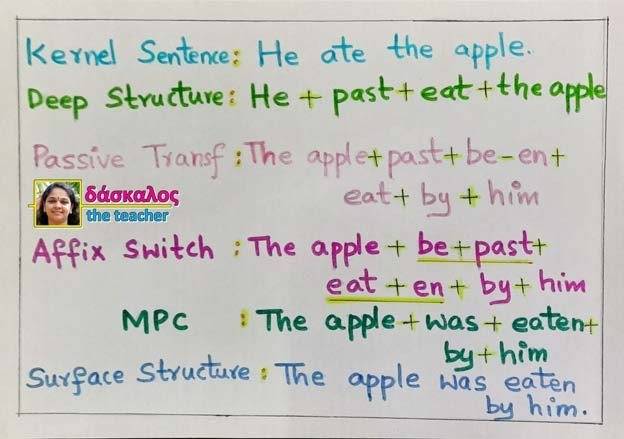 Kernel Sentence: He ate the apple.
Deep Structure: He + past + eat + the apple
Passive Transf : The apple+past+be-en+
eat+ by + him
δάσκαλος
the teacher
Affix Switch : The apple + be+past+
eat + en + by+him
MPC : The apple+was + eaten+
by+him
Surface Structure : The apple was eaten
by him.